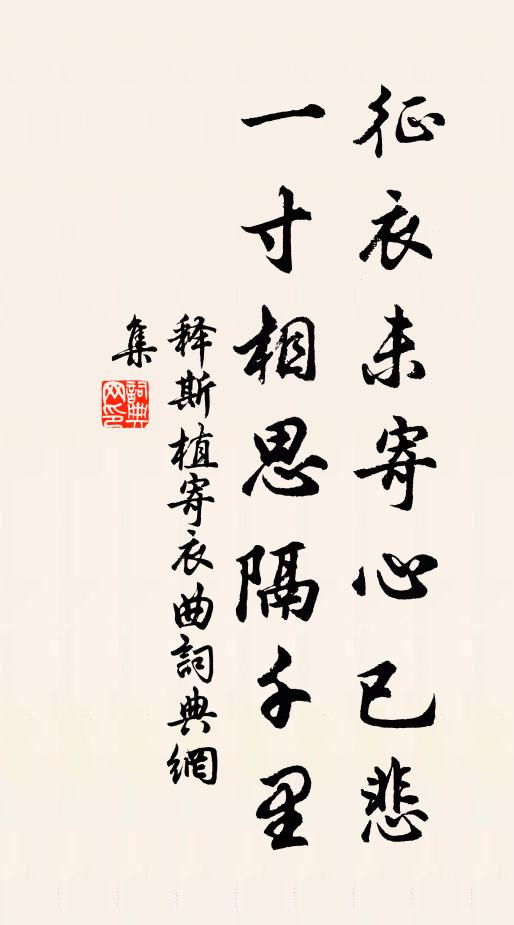 征衣未寄心已悲
一寸相思隔千里
释斯植寄衣曲詞典網
集
詞典
网印